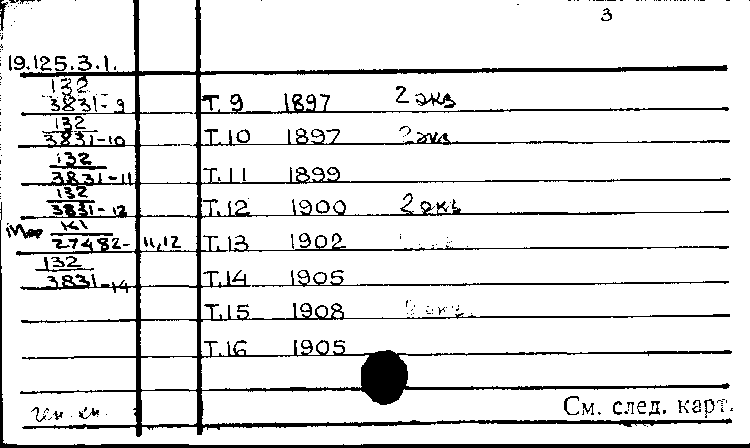 3
19.125.3.1.
132
3831-9 Т. 9 1897 2 экз
132
3831-10 Т.10 1897 2 экз
132
3831-11 Т.11 1899
132
3831-12 Т.12 1900 2 экз
27482- 11,12 Т.13 1902
132
3831-14 Т.14 1905
Т.15 1908 экз.
Т.16 1905
См. след. карт.